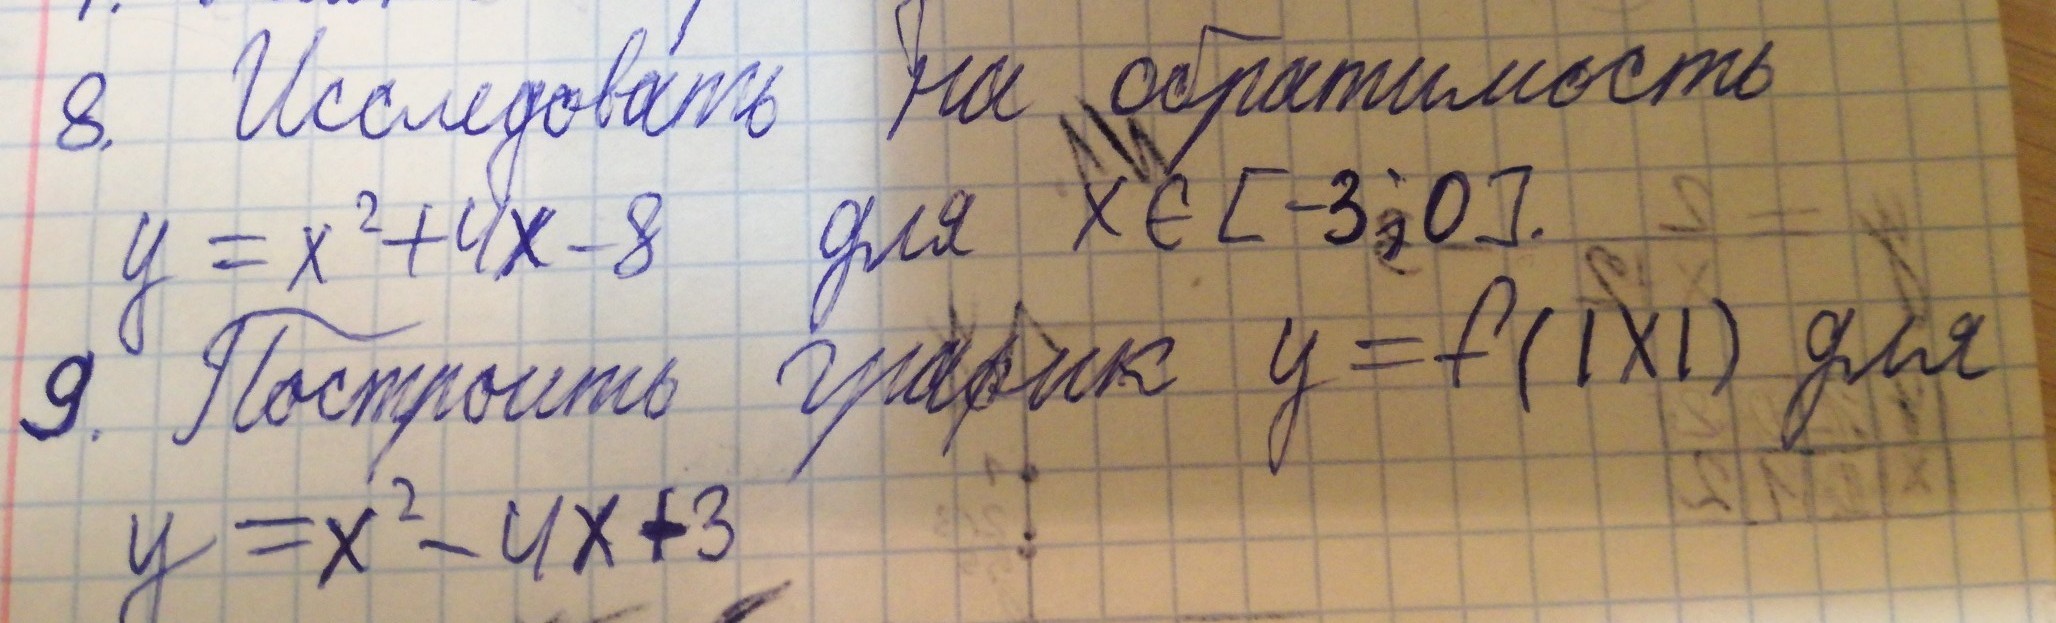 8. Исследовать на обратимость
y = x² + 4x - 8 для x ∈ [-3; 0].
9. Построить график y = f(|x|) для
y = x² - 4x + 3